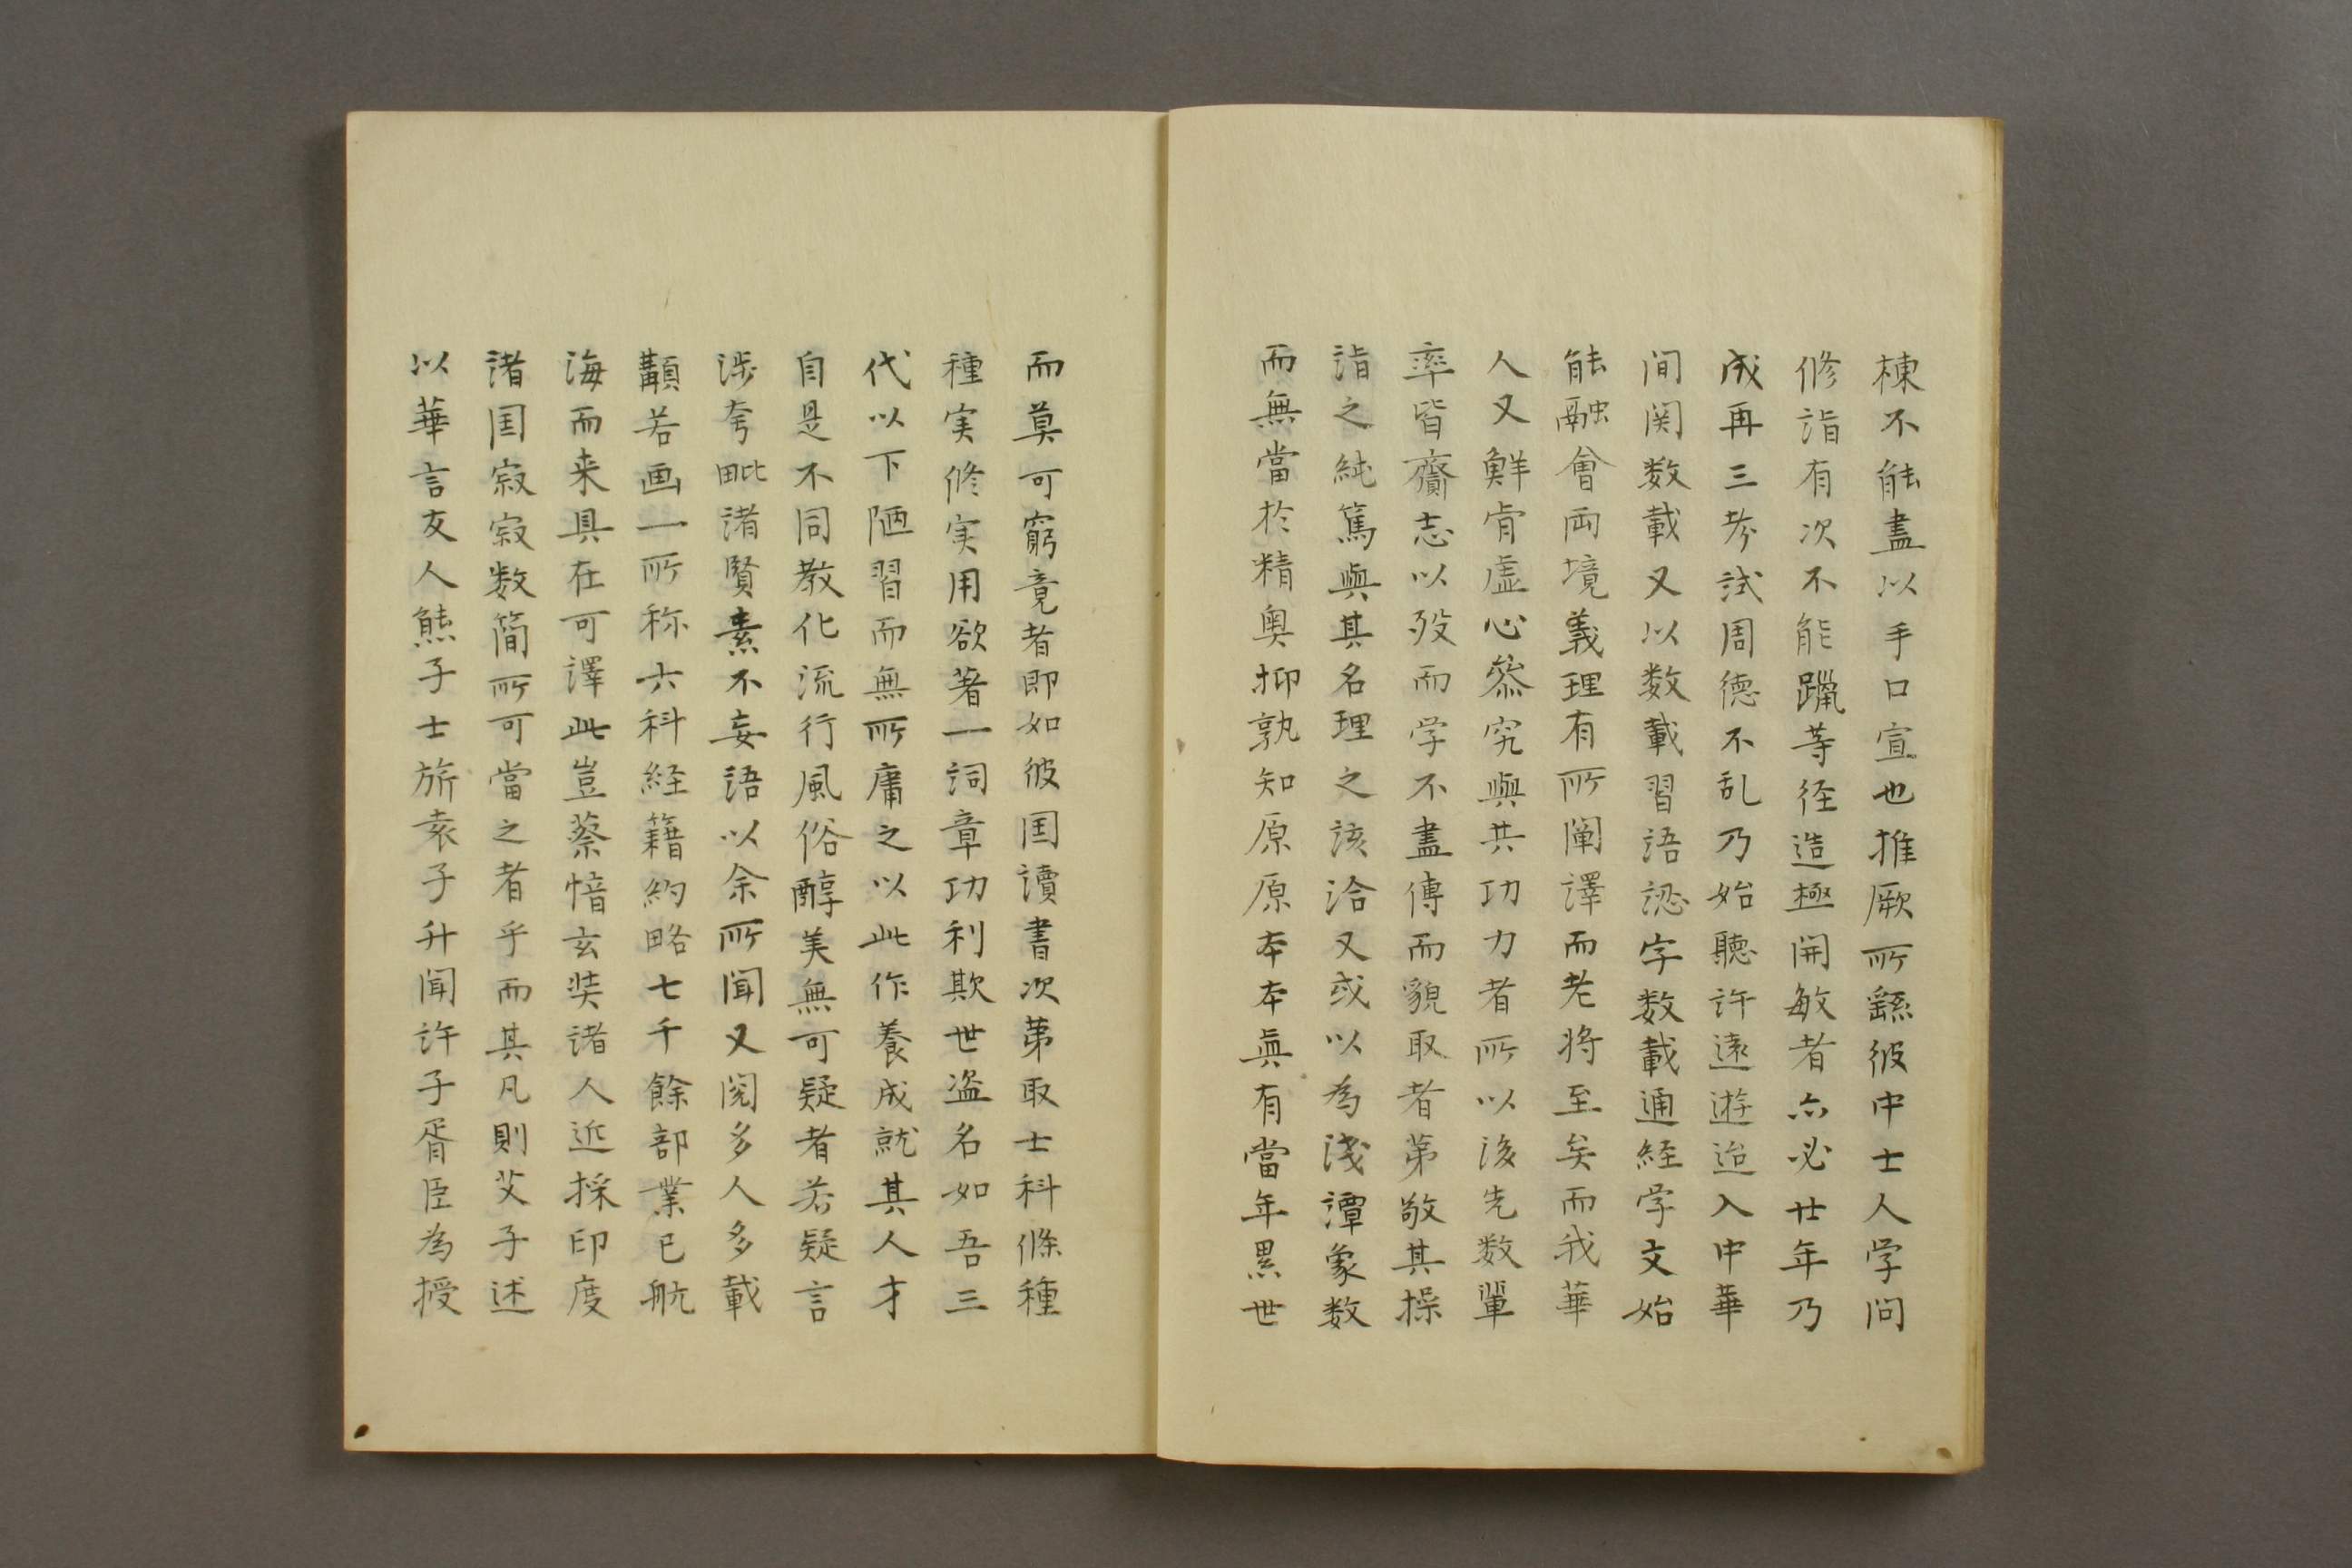 棟不能盡以手口宣也推厥所繇彼中士人学問
修詣有次不能躐等径造極開敏者亦必廿年乃
成再三考試周徳不乱乃始聽許遠遊迨入中華
间関数載又以数載習語認字数載通経学文始
能融會両境義理有所闡譯而老将至矣而我華
人又鮮肯虚心叅究與共功力者所以後先数輩
率皆齎志以歿而学不盡傳而貌取者第敬其操
詣之純篤與其名理之該洽又或以為淺譚象数
而無當於精奥抑孰知原原本本眞有當年累世
而莫可窮竟者即如彼囯讀書次第取士科條種
種実修実用欲著一詞章功利欺世盗名如吾三
代以下陋習而無所庸之以此作養成就其人才
自是不同教化流行風俗醇美無可疑者若疑言
涉夸毗诸賢素不妄語以余所闻又閱多人多載
顜若画一所称六科経籍約略七千餘部業已航
海而来具在可譯此豈蔡愔玄奘诸人近採印度
诸囯寂寂数简所可當之者乎而其凡則艾子述
以華言友人熊子士旂袁子升闻許子胥臣為授